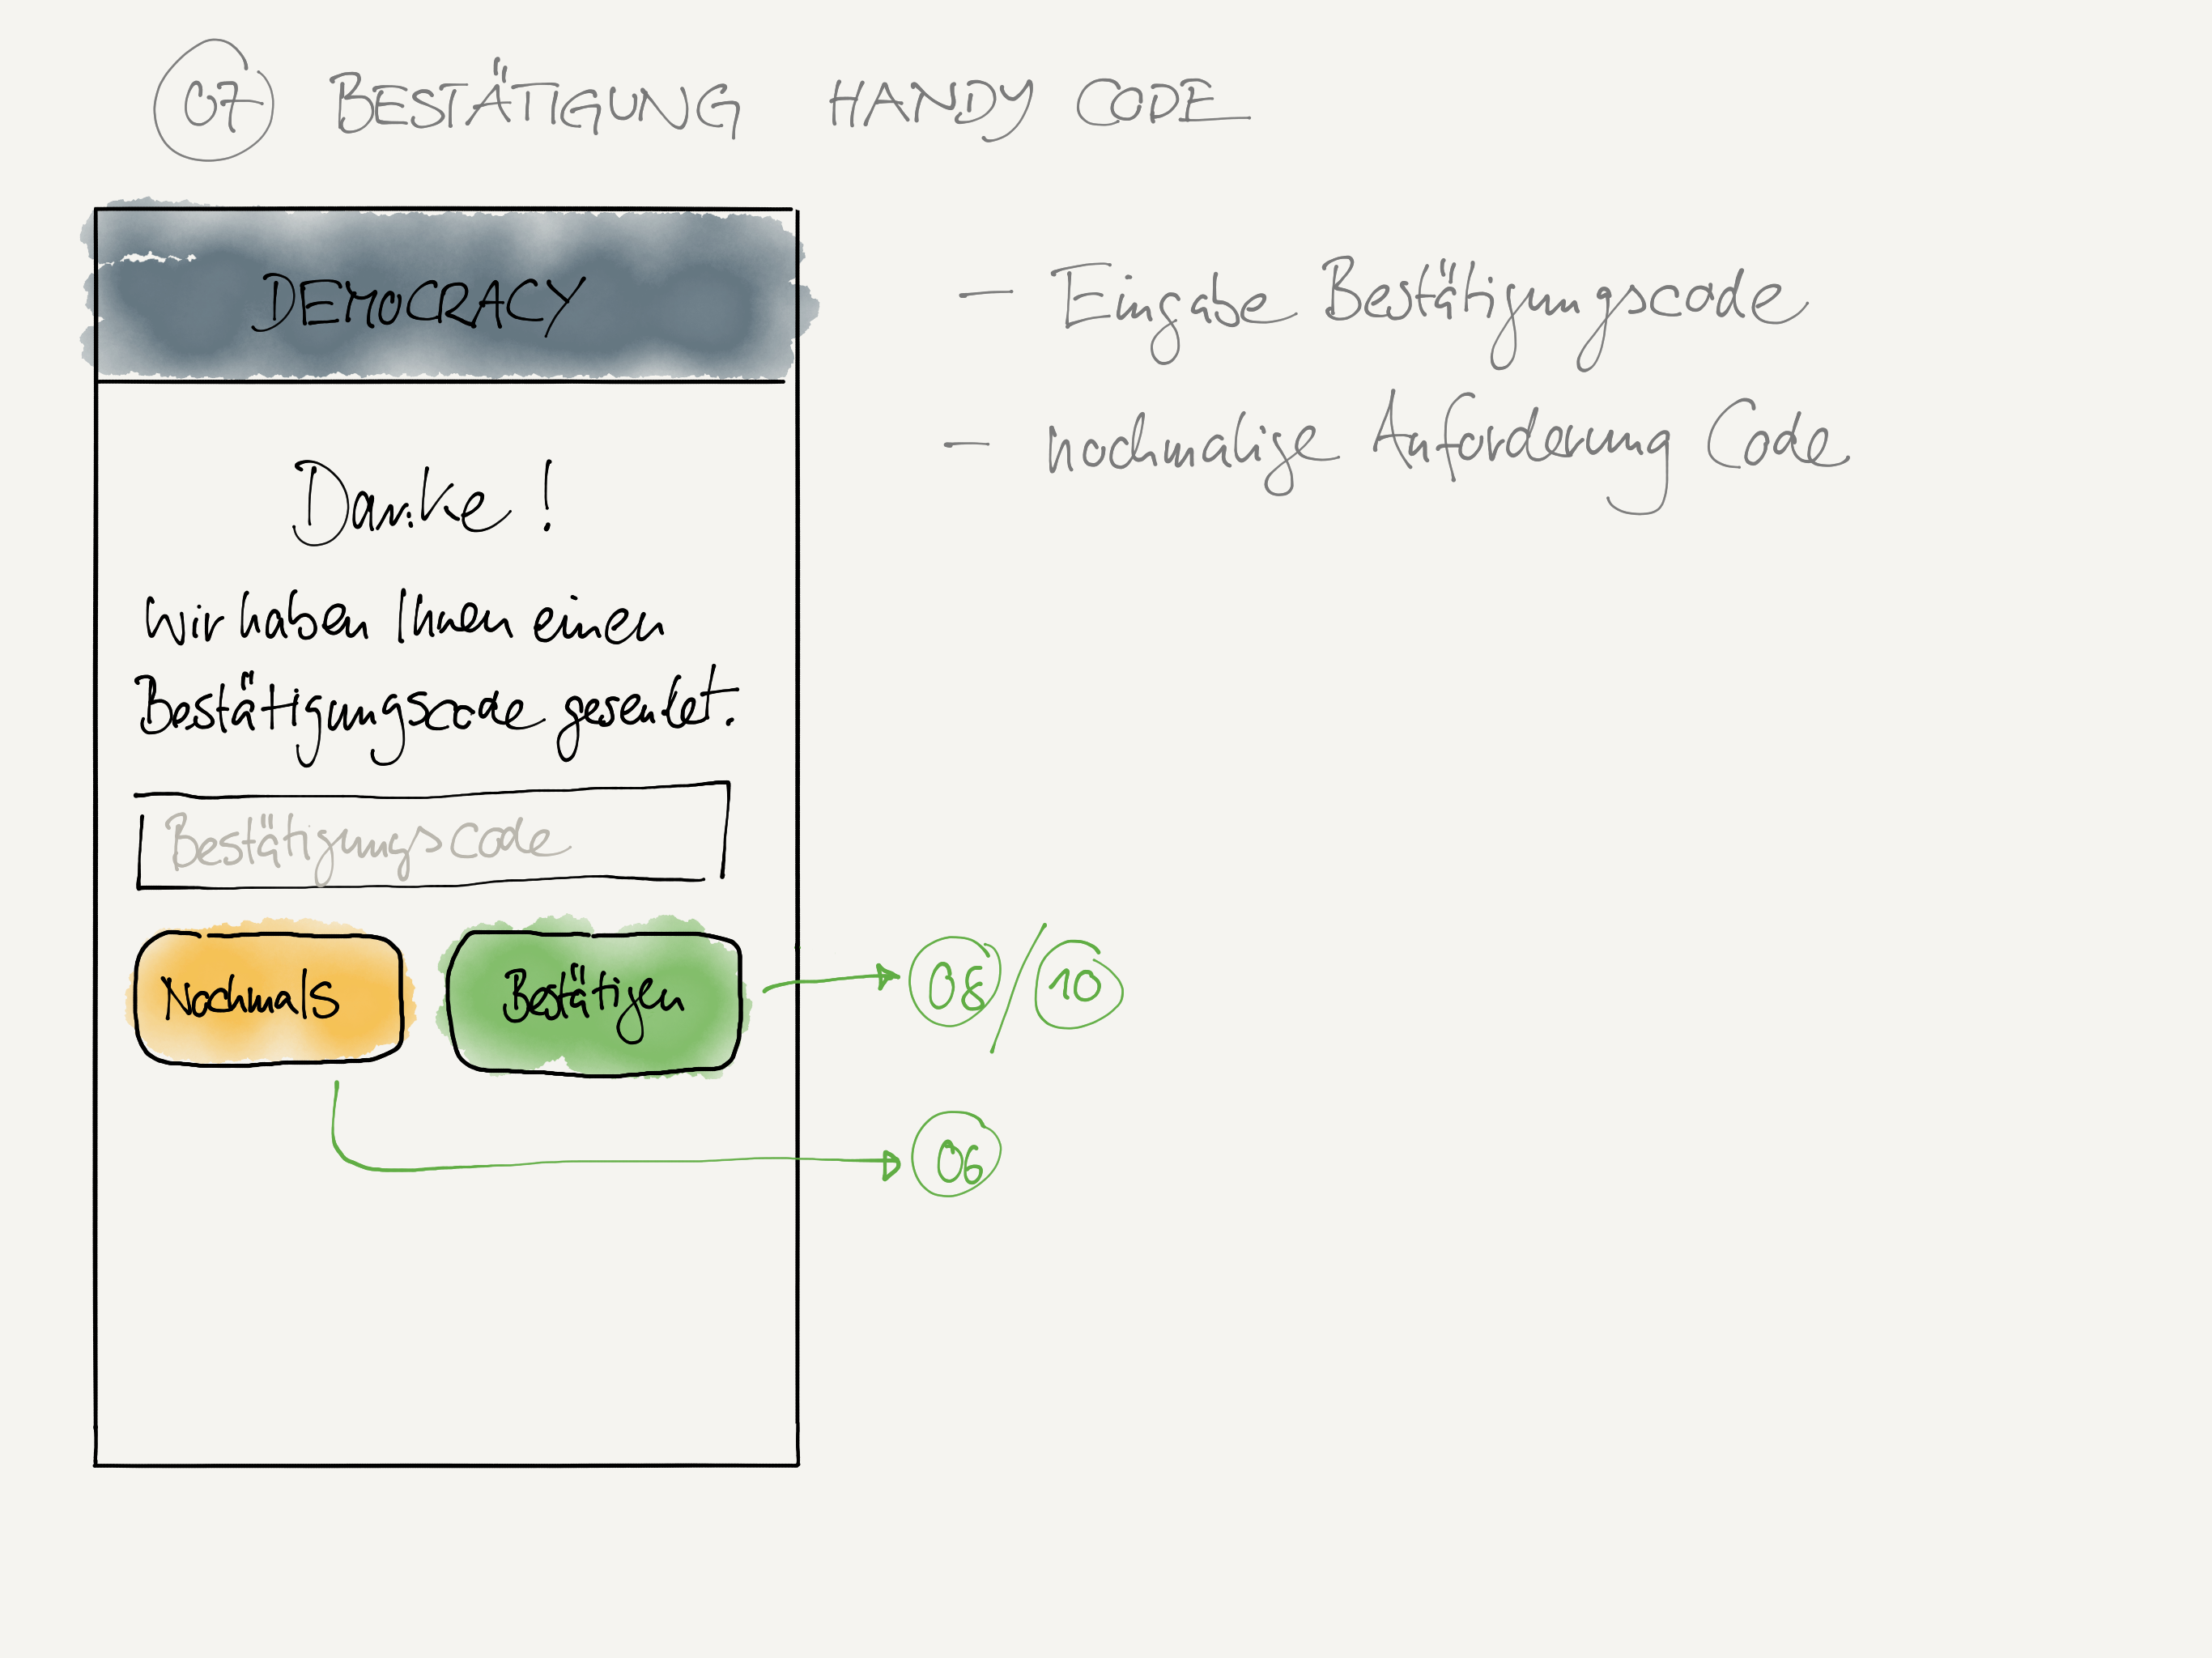 07 BESTÄTIGUNG HANDY CODE
DEMOCRACY
Danke!
Wir haben Ihnen einen
Bestätigungscode gesendet.
Bestätigungscode
Nochmals
Bestätigen
08/10
06
- Eingabe Bestätigungscode
- nochmalige Anforderung Code